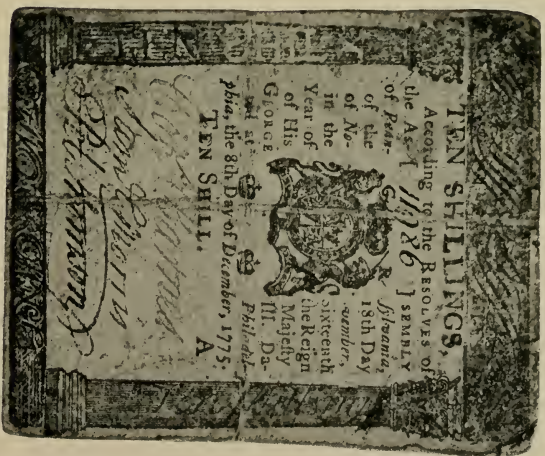 TEN SHILLINGS,
According to the RESOLVES of
the As- [ 11786 ] SEMBLY
of Penn- G R ſylvania,
of the 18th Day
of No- vember,
in the Sixteenth
Year of the Reign
of His Majeſty
GEORGE III. Da-
ted at Philadel-
phia, the 8th Day of December, 1775.
TEN SHILL. A